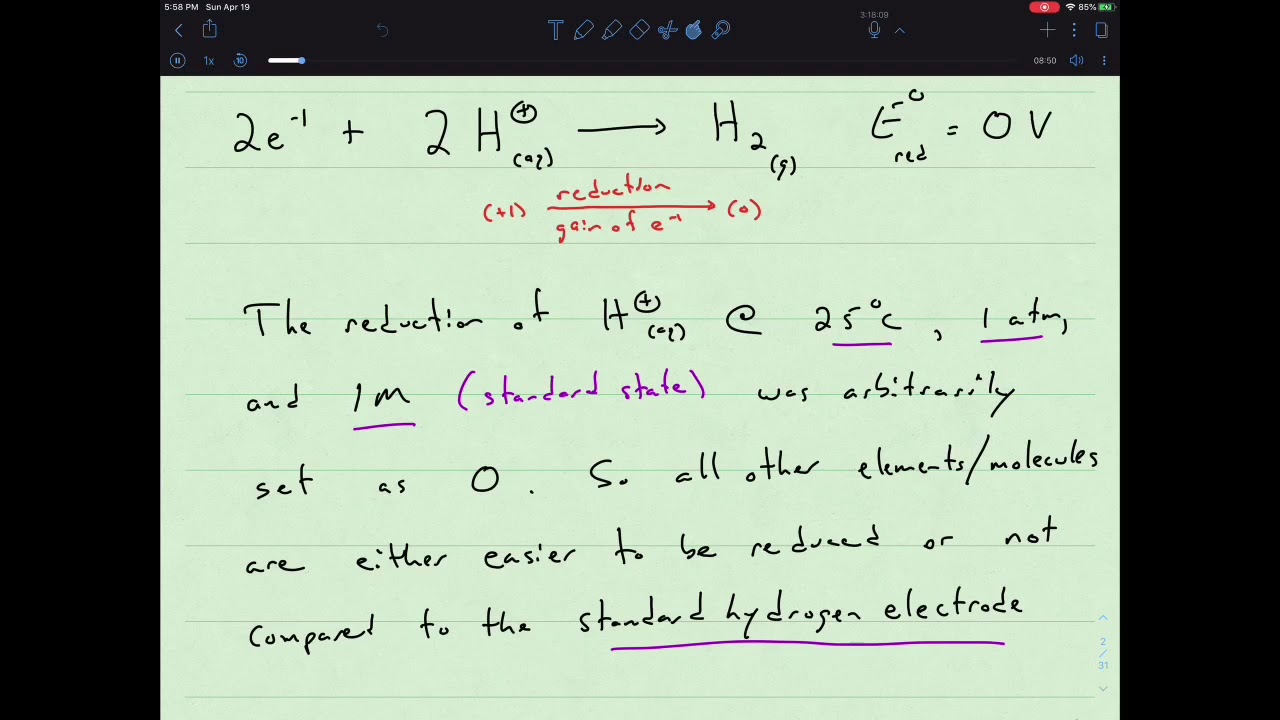 5:58 PM Sun Apr 19
85%
3:18:09
T
1x
10
08:50
2e⁻¹ + 2H⊕(aq) ⟶ H₂(g) E°red = 0 V
reduction
(+1) ⟶ (0)
gain of e⁻¹
The reduction of H⊕(aq) @ 25°C, 1 atm,
and 1M (standard state) was arbitrarily
set as 0. So all other elements/molecules
are either easier to be reduced or not
compared to the standard hydrogen electrode
2
/
31